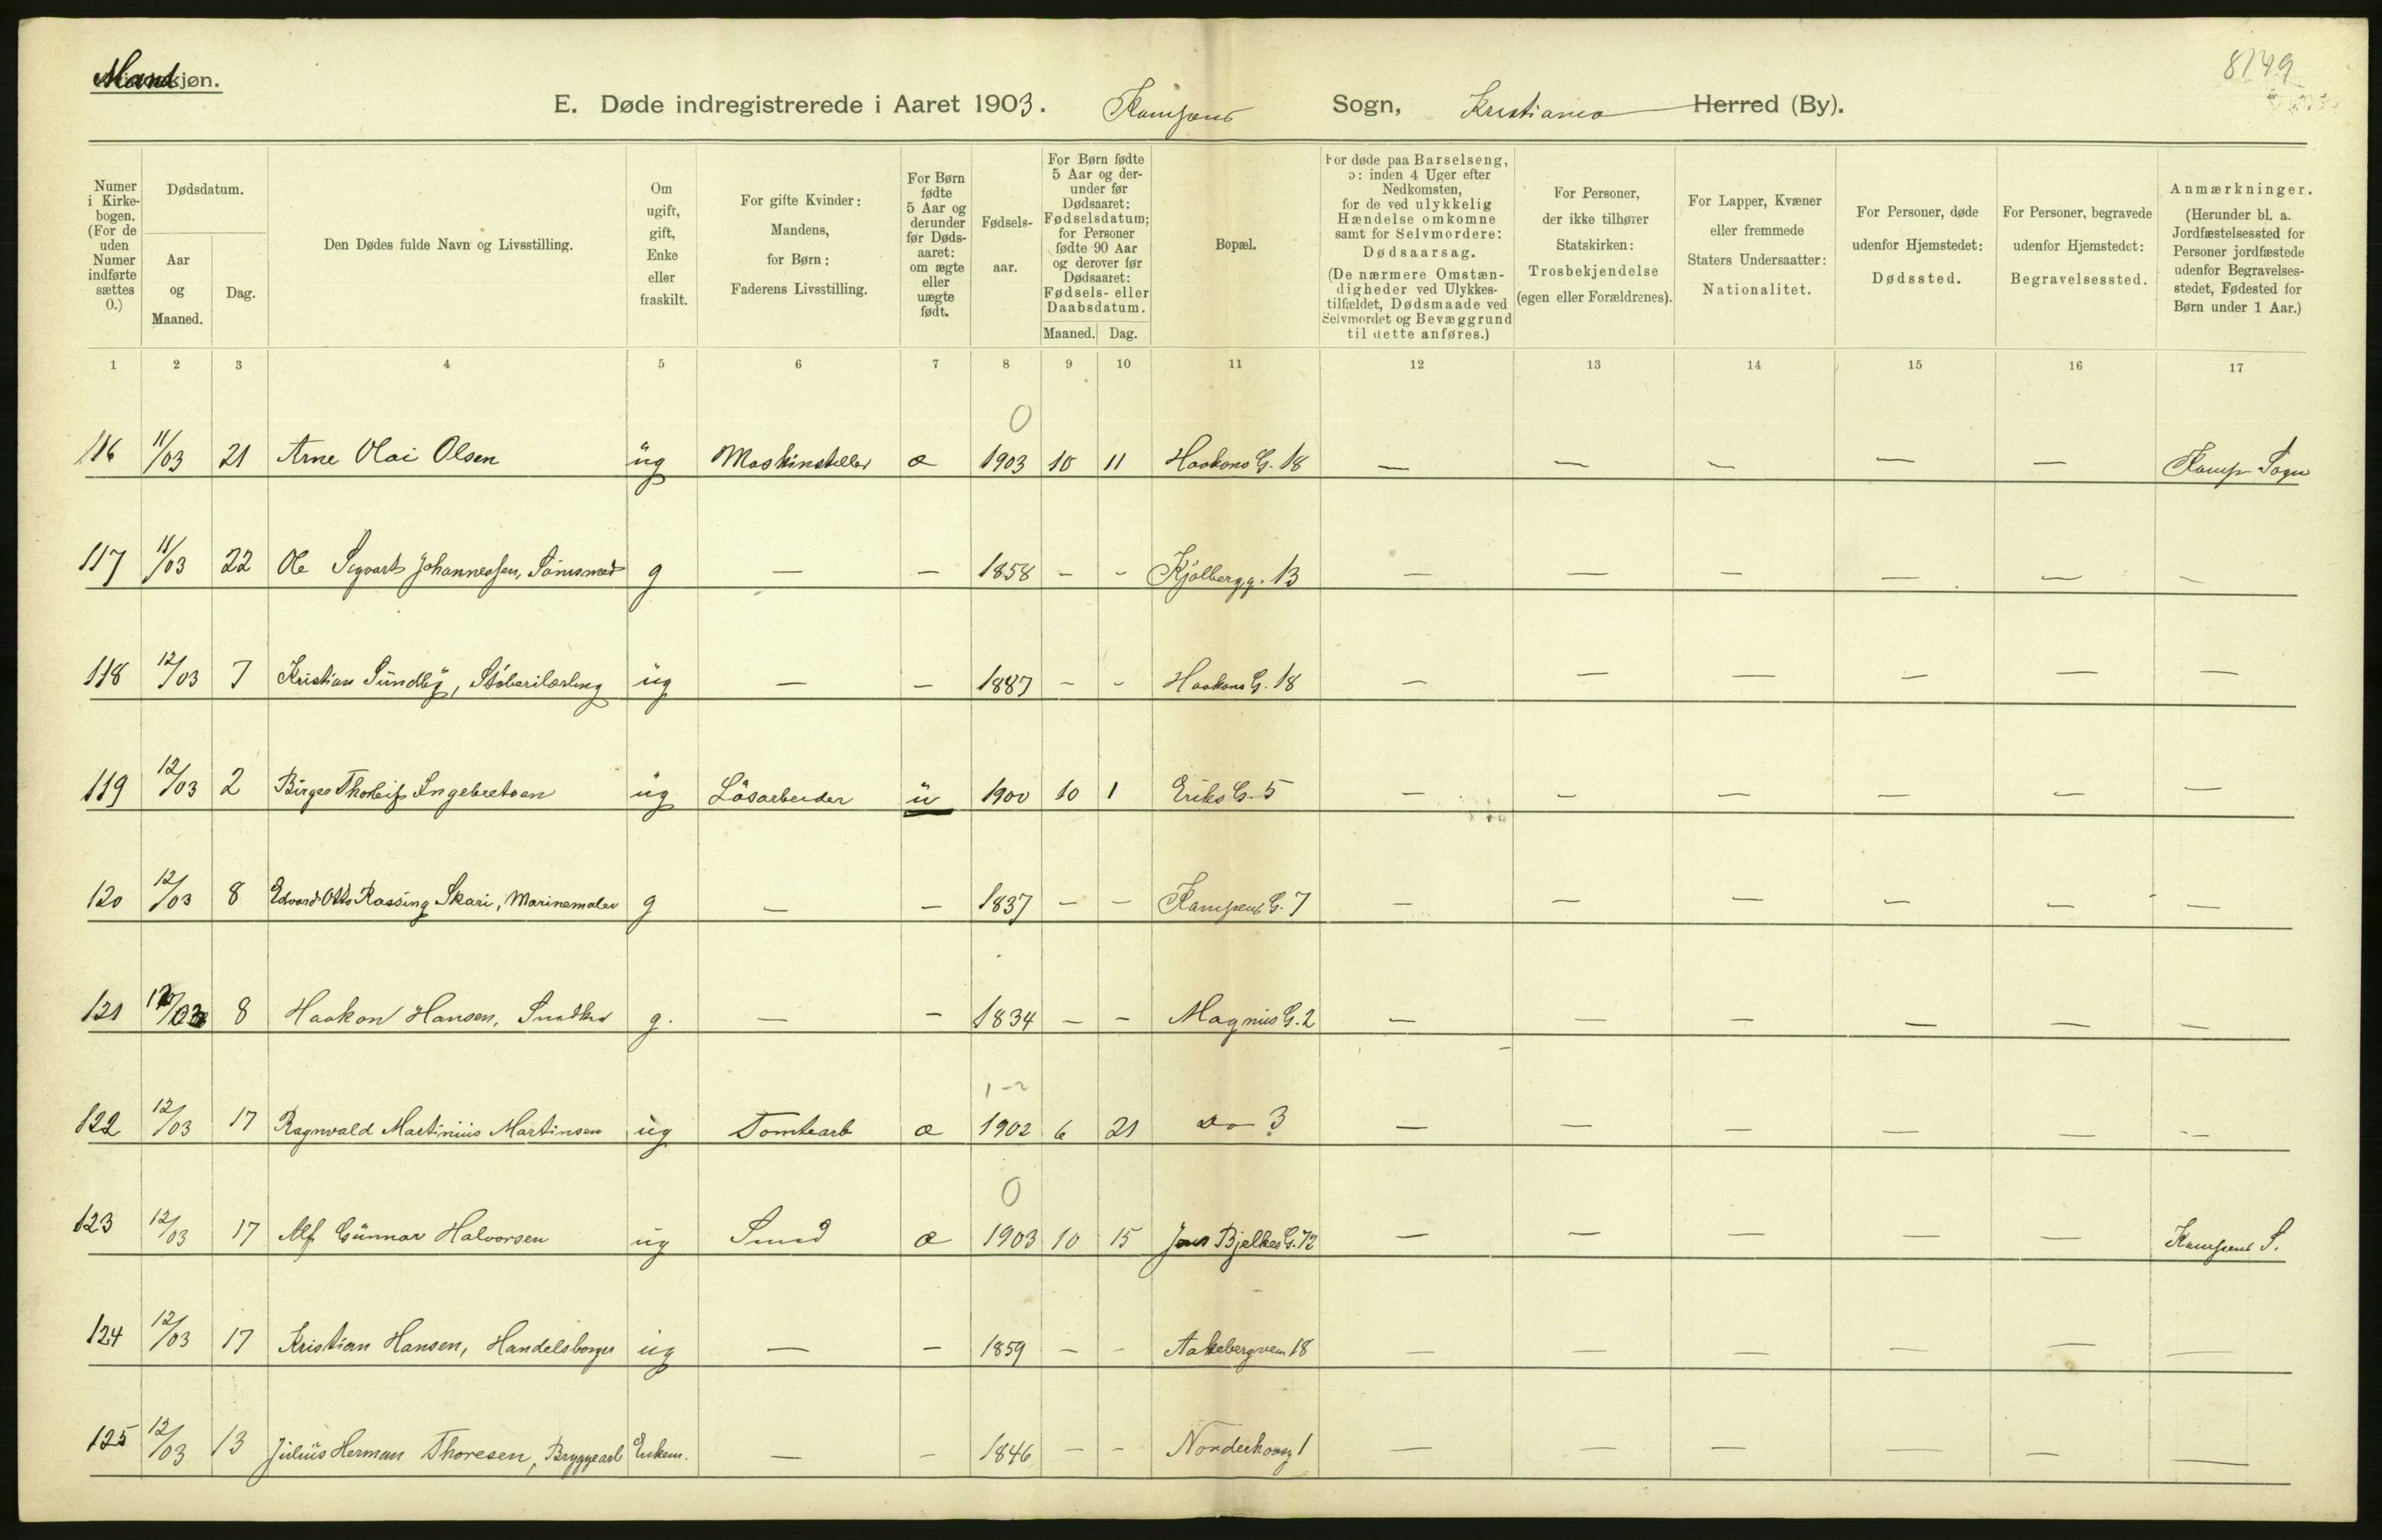 Mandkjøn.
8149
E. Døde indregistrerede i Aaret 1903. Kampens Sogn, Kristiania Herred (By).
Numer i Kirkebogen. (For de uden Numer indførte sættes 0.)
Dødsdatum.
Aar og Maaned.
Dag.
Den Dødes fulde Navn og Livsstilling.
Om ugift, gift, Enke eller fraskilt.
For gifte Kvinder: Mandens, for Børn: Faderens Livsstilling.
For Børn fødte 5 Aar og derunder før Dødsaaret: om ægte eller uægte født.
Fødselsaar.
For Børn fødte 5 Aar og derunder før Dødsaaret: Fødselsdatum; for Personer fødte 90 Aar og derover før Dødsaaret: Fødsels- eller Daabsdatum.
Maaned. Dag.
Bopæl.
For døde paa Barselseng, ɔ: inden 4 Uger efter Nedkomsten, for de ved ulykkelig Hændelse omkomne samt for Selvmordere: Dødsaarsag. (De nærmere Omstændigheder ved Ulykkestilfældet, Dødsmaade ved Selvmordet og Bevæggrund til dette anføres.)
For Personer, der ikke tilhører Statskirken: Trosbekjendelse (egen eller Forældrenes).
For Lapper, Kvæner eller fremmede Staters Undersaatter: Nationalitet.
For Personer, døde udenfor Hjemstedet: Dødssted.
For Personer, begravede udenfor Hjemstedet: Begravelsessted.
Anmærkninger. (Herunder bl. a. Jordfæstelsessted for Personer jordfæstede udenfor Begravelsesstedet, Fødested for Børn under 1 Aar.)
1 2 3 4 5 6 7 8 9 10 11 12 13 14 15 16 17
0
116 11/03 21 Arne Olai Olsen ug Maskinsteller æ 1903 10 11 Haakons G. 18 — — — — — Kamp Sogn
117 11/03 22 Ole Sigvart Johannessen, g — — 1858 - - Kjølbergg. 13 — — — — — —
118 12/03 7 Kristian Sundby, Støberilærling ug — — 1887 - - Haakons G. 18 — — — — — —
119 12/03 2 Birger Thorleif Ingebretsen ug Løsarbeider u 1900 10 1 Eriks G. 5 — — — — — —
120 12/03 8 Edvard Otto Rassing Skari, Marinemaler g — — 1837 — — Kampens G. 7 — — — — — —
121 12/03 8 Haakon Hansen, Snedker g. — — 1834 — — Magnus G. 2 — — — — — —
1-2
122 12/03 17 Ragnvald Martinius Martinsen ug Tomtearb æ 1902 6 21 Do 3 — — — — — —
0
123 12/03 17 Alf Gunnar Halvorsen ug Smed æ 1903 10 15 Jens Bjelkes G. 72 — — — — — Kampens S.
124 12/03 17 Kristian Hansen, Handelsborger ug — — 1859 - - Aakebergvein 18 — — — — — —
125 12/03 13 Julius Herman Thoresen, Bryggearb Enkem. — — 1846 — — Norderhovg 1 — — — — — —